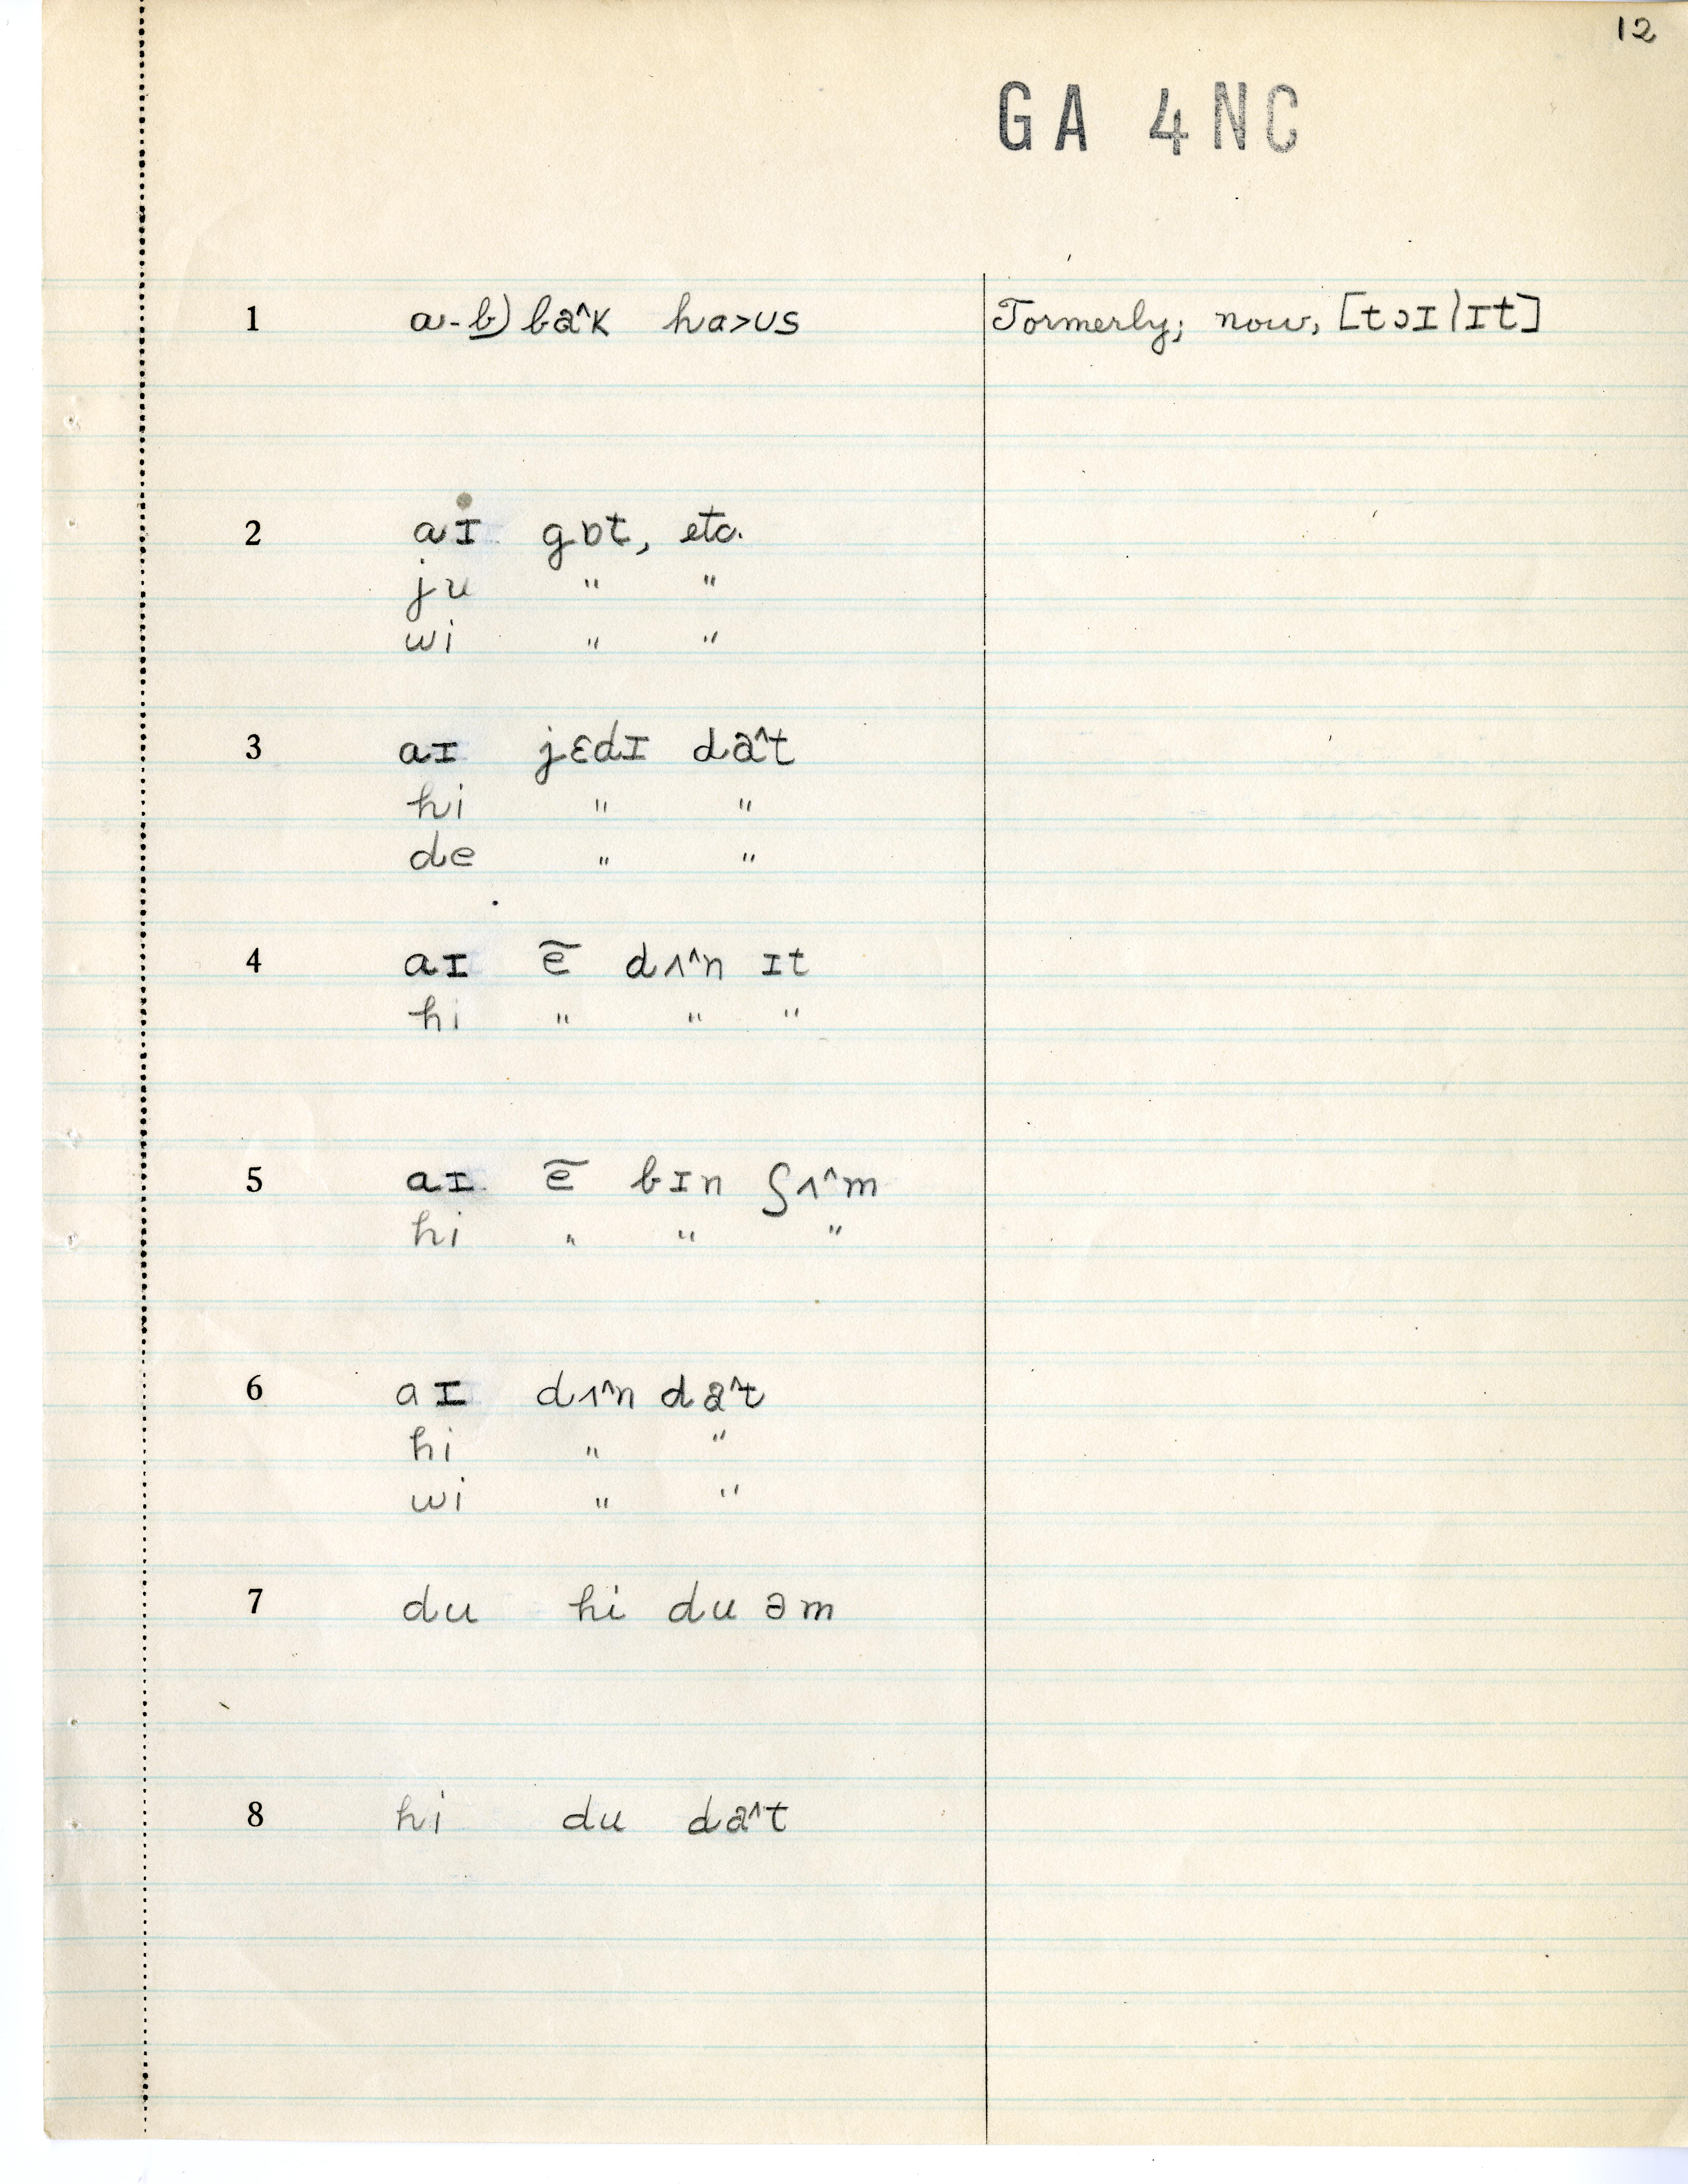 12
GA 4NC
1 a-b) ba^k ha>ʊs Formerly; now, [tɔɪlɪt]
2 aɪ gɒt, etc.
ju " "
wi " "
3 aɪ jɛdɪ da^t
hi " "
de " "
4 aɪ ẽ dʌ^n ɪt
hi " " "
5 aɪ ẽ bɪn ʃʌ^m
hi " " "
6 aɪ dʌ^n da^t
hi " "
wi " "
7 du hi du əm
8 hi du da^t